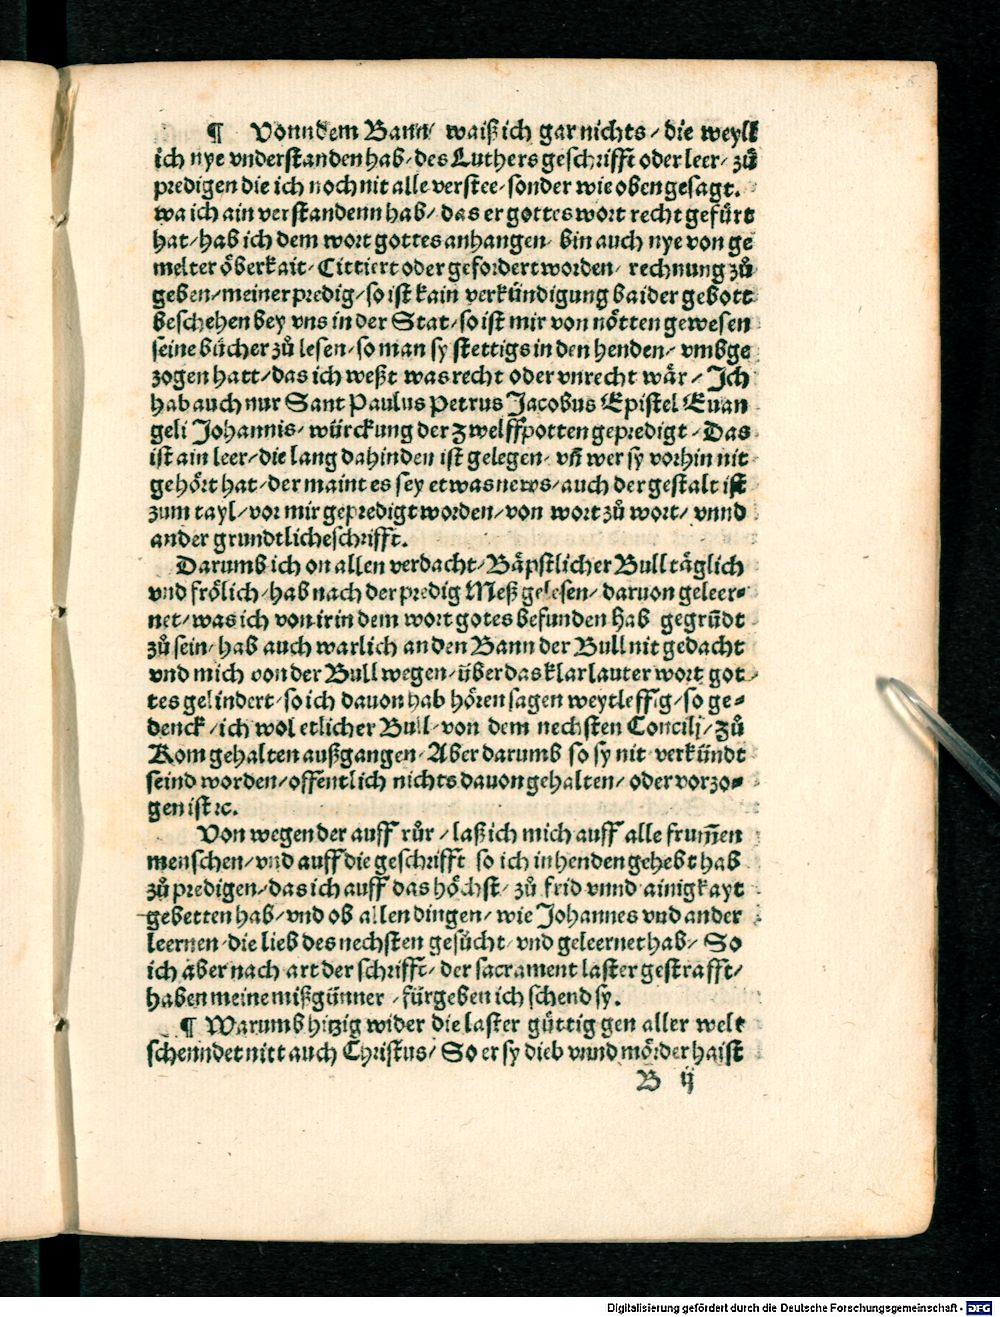 ¶ Vonn dem Bann/ waiß ich gar nichts/ die weyll
ich nye vnderstanden hab/ des Luthers geschrifft oder leer/ zuͦ
predigen die ich noch nit alle verstee/ sonder wie oben gesagt.
wa ich ain verstandenn hab/ das er gottes wort recht gefuͤrt
hat/ hab ich dem wort gottes anhangen/ bin auch nye von ge
melter oͤberkait/ Cittiert oder gefordert worden/ rechnung zuͦ
geben/ meiner predig/ so ist kain verkündigung baider gebott
beschehen bey vns in der Stat/ so ist mir von noͤtten gewesen
seine buͤcher zuͦ lesen/ so man sy stettigs in den henden/ vmbge
zogen hatt/ das ich weßt was recht oder vnrecht waͤr/ Ich
hab auch nur Sant Paulus Petrus Jacobus Epistel Euan
geli Johannis/ würckung der zwelffpotten gepredigt/ Das
ist ain leer/ die lang dahinden ist gelegen/ vñ wer sy vorhin nit
gehoͤrt hat/ der maint es sey etwas news/ auch der gestalt ist
zum tayl/ vor mir gepredigt worden/ von wort zuͦ wort/ vnnd
ander grundtliche schrifft.
Darumb ich on allen verdacht/ Baͤpstlicher Bull taͤglich
vnd froͤlich/ hab nach der predig Meß gelesen/ daruon geleer⸗
net/ was ich von ir in dem wort gotes befunden hab gegrüdt
zuͦ sein/ hab auch warlich an den Bann der Bull nit gedacht
vnd mich von der Bull wegen/ über das klar lauter wort got/
tes gelindert/ so ich dauon hab hoͤren sagen weytleffig/ so ge⸗
denck/ ich wol etlicher Bull/ von dem nechsten Concilj/ zuͦ
Rom gehalten außgangen/ Aber darumb so sy nit verkündt
seind worden/ offentlich nichts dauon gehalten/ oder vorzo⸗
gen ist ꝛc.
Von wegen der auff ruͦr/ laß ich mich auff alle frum̃en
menschen/ vnd auff die geschrifft so ich in henden gehebt hab
zuͦ predigen/ das ich auff das hoͤchst/ zuͦ frid vnnd ainigkayt
gebetten hab/ vnd ob allen dingen/ wie Johannes vnd ander
leernen/ die lieb des nechsten gesuͦcht/ vnd geleernet hab/ So
ich aber nach art der schrifft/ der sacrament laster gestrafft/
haben meine mißgünner/ fürgeben ich schend sy.
¶ Warumb hitzig wider die laster güttig gen aller welt
schenndet nitt auch Christus/ So er sy dieb vnnd moͤrder haist
B ij
Digitalisierung gefördert durch die Deutsche Forschungsgemeinschaft - DFG